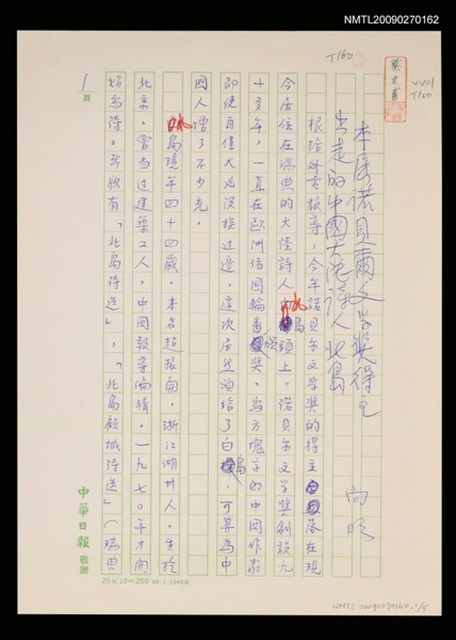 NMTL20090270162
T160
蔡文甫
4401
T160
本屆諾貝爾文學獎得主
出走的中國大陸詩人北島
向明
根據外電報導,今年諾貝尔文學獎的得主落在現
今居住在瑞典的大陸詩人北島頭上。諾貝尔文學獎創設九
十多年,一直在歐洲諸國輪番頒獎,寫方塊字的中国作家
即使再偉大也沒挨过邊,這次居然頒給了北島,可算為中
國人增了不少光。
北島現年四十四歲,本名趙振開,浙江湖州人,生於
北京,曾当过建築工人,中国報導編輯,一九七0年才開
始寫詩。出版有「北島詩选」,「北島顧城诗选」(瑞典
1頁
中華日報 敬贈
25×10=250
NMTL20090270162, 1/5